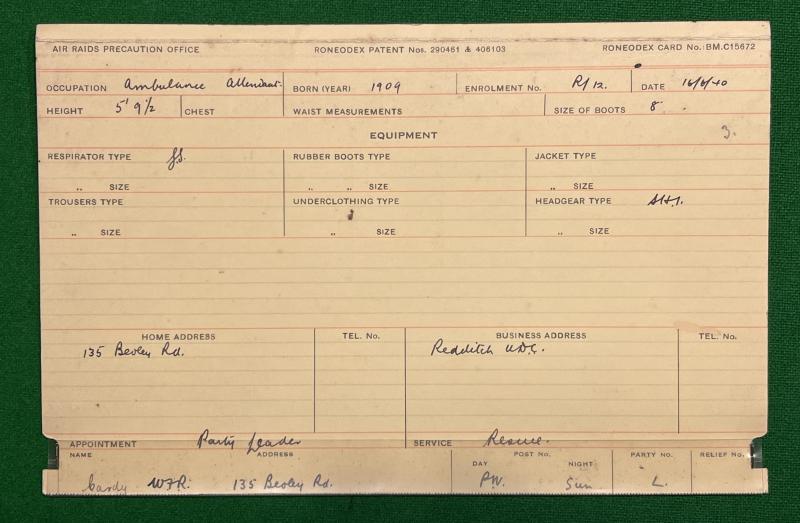 AIR RAIDS PRECAUTION OFFICE RONEODEX PATENT Nos. 290461 & 406103 RONEODEX CARD No.: BM.C15672
OCCUPATION Ambulance Attendant. BORN (YEAR) 1909 ENROLMENT No. R/12. DATE 16/6/40
HEIGHT 5' 9½ CHEST WAIST MEASUREMENTS SIZE OF BOOTS 8
EQUIPMENT 3.
RESPIRATOR TYPE RUBBER BOOTS TYPE JACKET TYPE
„ SIZE „ „ SIZE „ SIZE
TROUSERS TYPE UNDERCLOTHING TYPE HEADGEAR TYPE
„ SIZE „ SIZE „ SIZE
HOME ADDRESS TEL. No. BUSINESS ADDRESS TEL. No.
135 Beoley Rd. Redditch U.D.C.
APPOINTMENT Party Leader SERVICE Rescue.
NAME ADDRESS POST No. PARTY No. RELIEF No.
DAY NIGHT
Cardy W.F.R. 135 Beoley Rd. L.